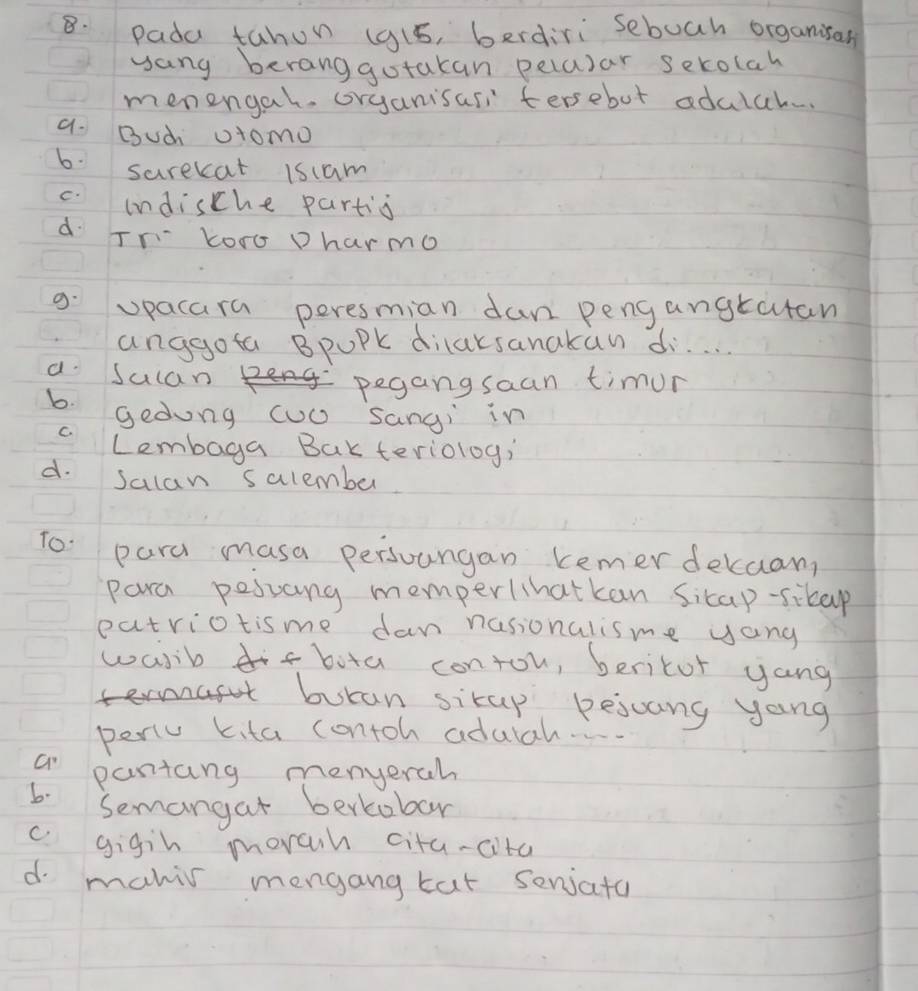 8. Pada tahun 1915, berdiri sebuah organisasi
yang beranggotakan pelajar sekolah
menengah. Organisasi tersebut adalah...
a. Budi Utomo
b. Sarekat Islam
c. Indische partij
d. Tri koro Dharmo
9. Upacara peresmian dan pengangkatan
anggota BPUPK dilaksanakan di....
a. Jalan pegangsaan timur
b. gedung Cuo Sangi in
c. Lembaga Bakteriologi
d. Jalan salemba
10. para masa perjuangan kemerdekaan,
para pejuang memperlihatkan sikap-sikap
patriotisme dan nasionalisme yang
wajib kita contoh, berikut yang
bukan sikap pejuang yang
perlu kita contoh adalah....
a. pantang menyerah
b. Semangat berkobar
c. gigih meraih cita-cita
d. mahir mengangkat senjata